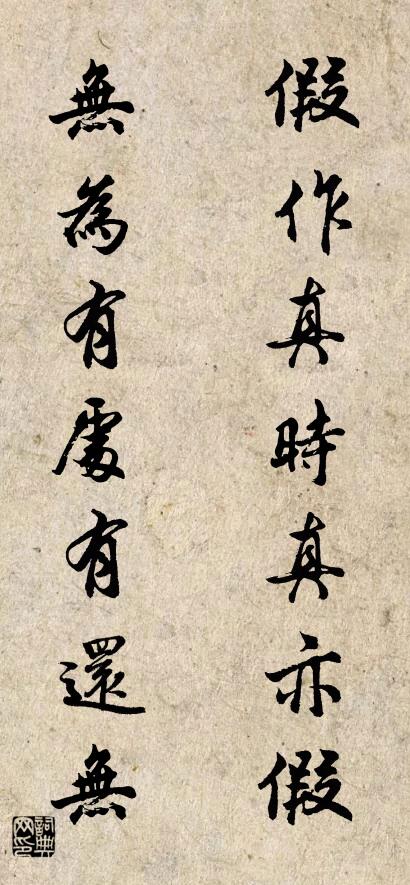 假作真時真亦假
無為有處有還無
詞典网印